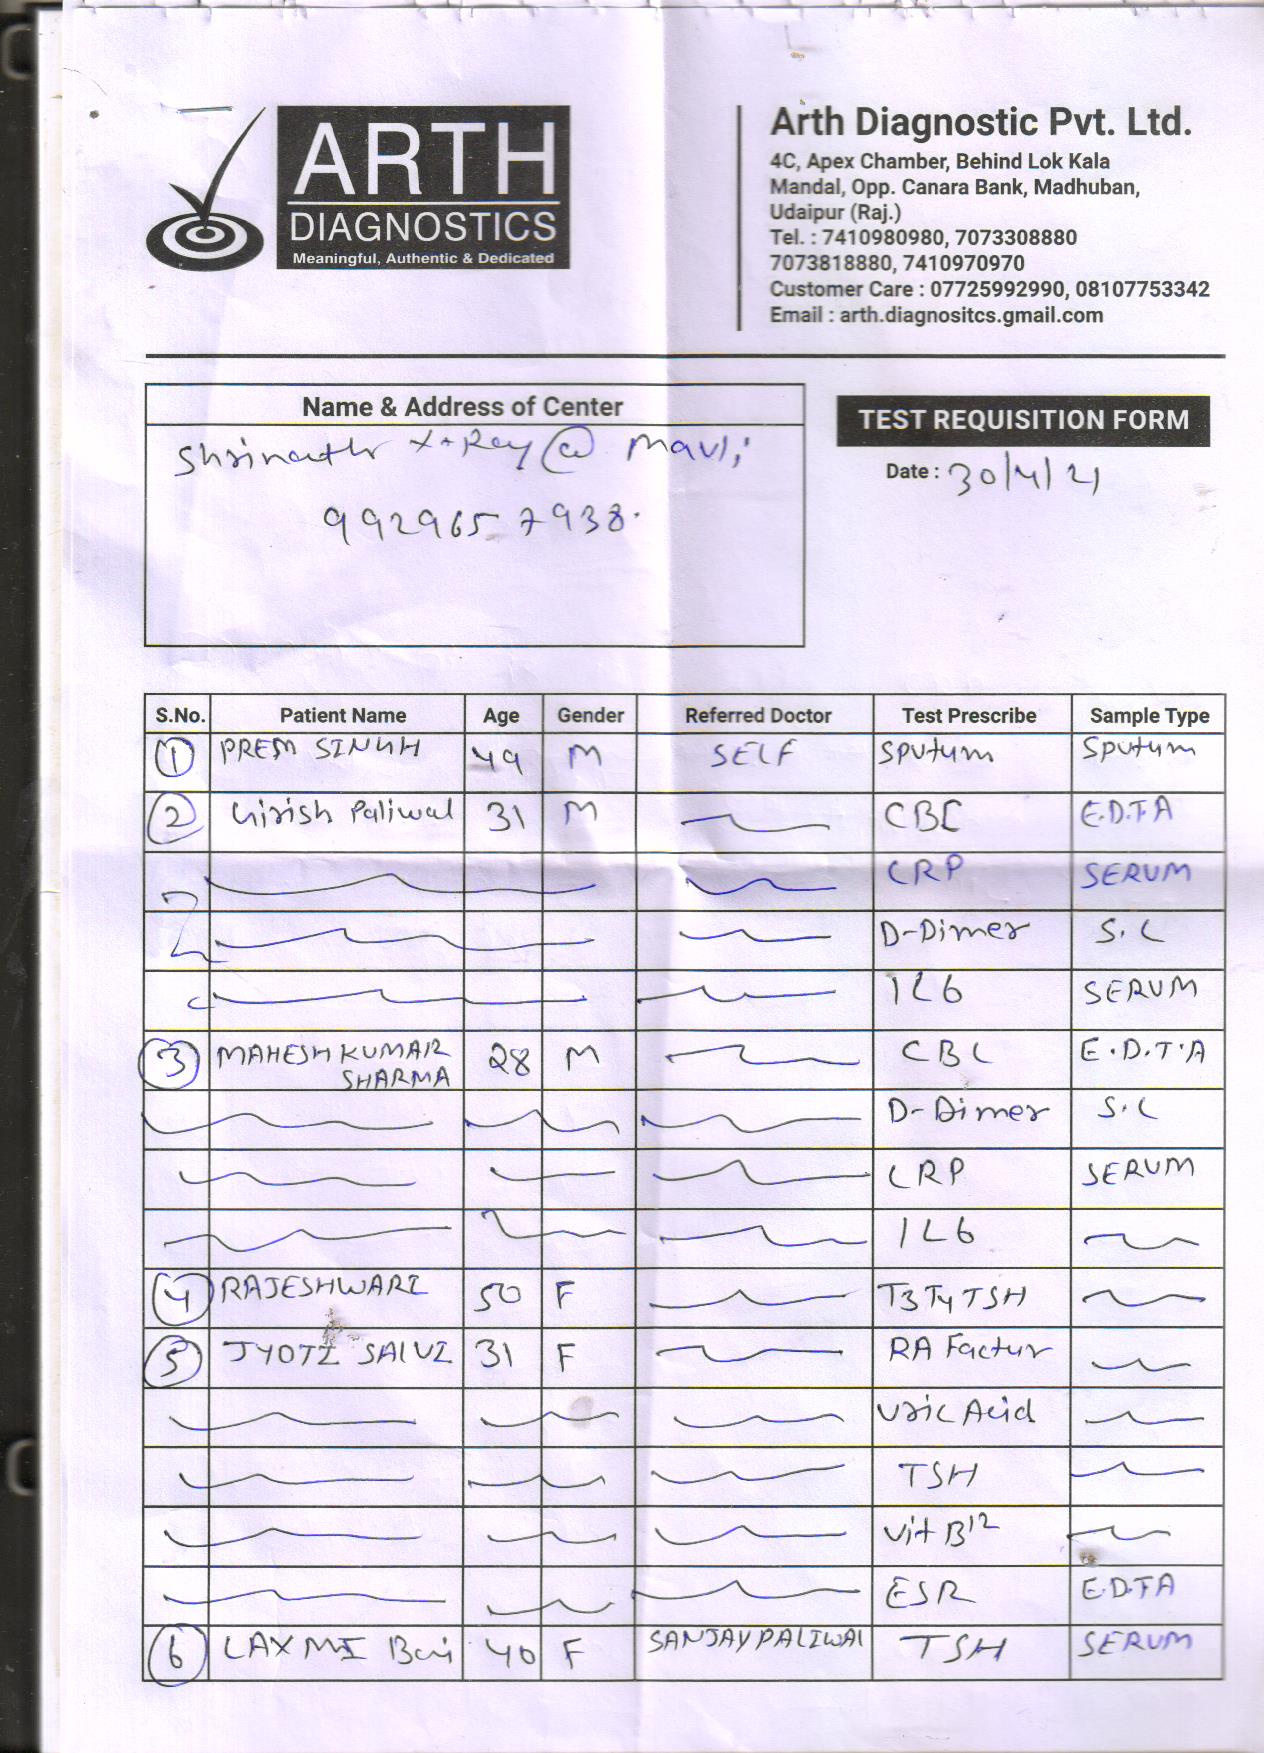 ARTH
DIAGNOSTICS
Meaningful, Authentic & Dedicated
Arth Diagnostic Pvt. Ltd.
4C, Apex Chamber, Behind Lok Kala
Mandal, Opp. Canara Bank, Madhuban,
Udaipur (Raj.)
Tel. : 7410980980, 7073308880
7073818880, 7410970970
Customer Care : 07725992990, 08107753342
Email : arth.diagnositcs.gmail.com
Name & Address of Center
Shrinath X-Ray @ Mavli
9929657938.
TEST REQUISITION FORM
Date : 30/4/21
S.No. Patient Name Age Gender Referred Doctor Test Prescribe Sample Type
1 PREM SINGH 49 M SELF Sputum Sputum
2 Girish Paliwal 31 M CBC E.D.T.A
CRP SERUM
D-Dimer S.C
IL6 SERUM
3 MAHESH KUMAR SHARMA 28 M CBC E.D.T.A
D-Dimer S.C
CRP SERUM
IL6
4 RAJESHWARI 50 F T3 T4 TSH
5 JYOTI SALVI 31 F RA Factur
Uric Acid
TSH
Vit B12
ESR E.D.T.A
6 LAXMI Bai 40 F SANJAY PALIWAL TSH SERUM